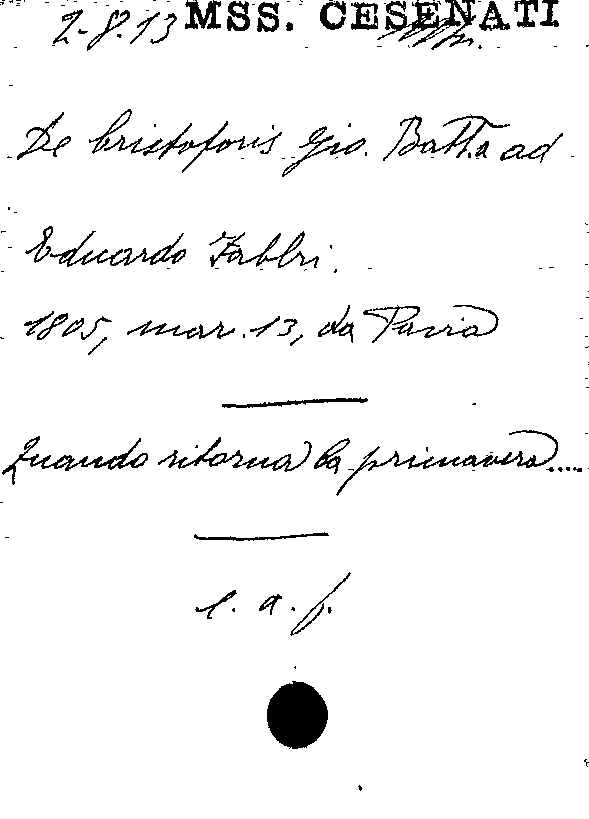 2-8.13 MSS. CESENATI
De Cristoforis Gio. Batt.a ad
Eduardo Fabbri.
1805, mar. 13, da Pavia
Quando ritorna la primavera....
l. a. f.